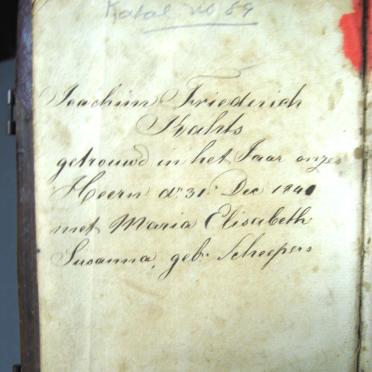 Katal no 69
Joachim Friederich
Kahts
getrouwd in het Jaar onzes
Heern d: 31 Dec 1840
met Maria Elisabeth
Susanna, geb. Scheepers